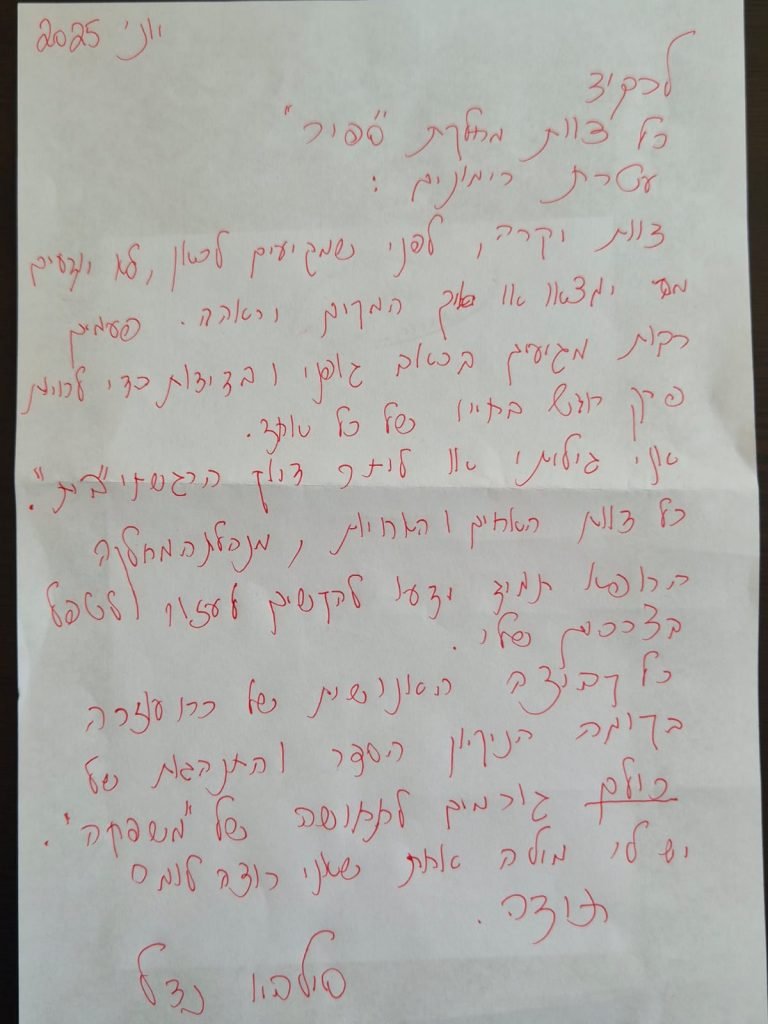 יוני 2025
לכל צוות מחלקת "ספיר"
עטרת רימונים :
צוות יקרה, לפני שמגיעים לכאן, לא יודעים
מה ימצאו או איך המקום יראה. פעמים
רבות מגיעים בכאב גופני ובדידות כדי להיות
פרק חדש בחייו של כל אחד.
אני גיליתי או ליתר דיוק הרגשתי "בית".
כל צוות האחים והאחיות, מנהלת המחלקה
הרופא תמיד ידעו להקשיב לעזור ולטפל
בצרכים שלי.
כל קבוצה האנושית של כח עזרה
בקומה הניקיון הסדר והתנהגות של
כולם גורמים לתחושה של "משפחה".
יש לי מילה אחת שאני רוצה לומר
תודה.
סילביא